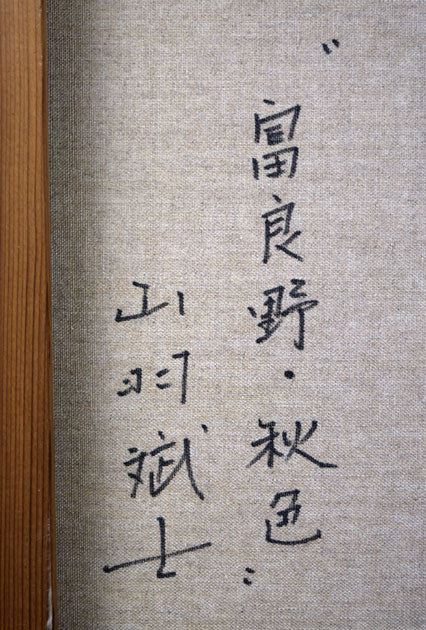 "富良野・秋色"
山羽斌士